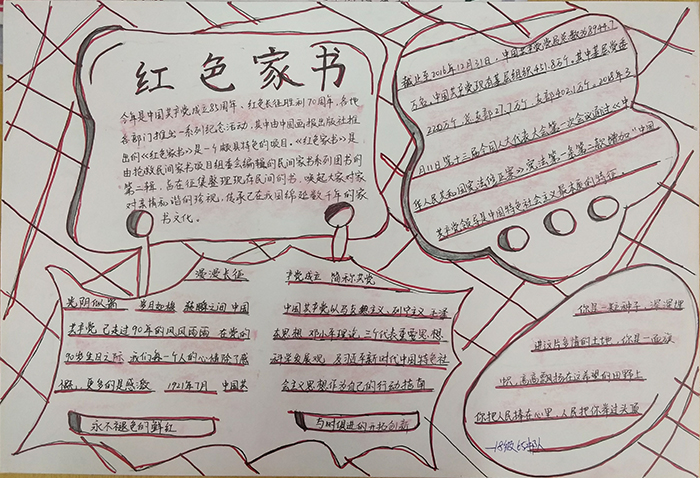 红色家书
今年是中国共产党成立85周年、红色长征胜利70周年，各地
各部门推出一系列纪念活动，其中由中国画报出版社推
出的《红色家书》是一个颇具特色的项目。《红色家书》是
由抢救民间家书项目组委会编辑的民间家书系列图书的
第二辑，旨在征集整理现存民间的书，唤起大家对家
对亲情和谐的珍视，传承已在我国绵延数千年的家
书文化。
截止至2016年12月31日，中国共产党党员总数为8944.7
万名，中国共产党现有基层组织451.8万个。其中基层党委
220万个 总支部27.7万个 支部402.1万个，2018年3
月11日第十三届全国人大代表大会第一次会议通过《中
华人民共和国宪法修正案》宪法第一条第二款增加"中国
共产党领导是中国特色社会主义最本质的特征。
漫漫长征
光阴似箭 岁月如梭 转瞬之间 中国
共产党 已走过90年的风风雨雨 在党的
90岁生日之际 我们每一个人的心情除了感
慨，更多的是感激 1921年7月 中国共
永不褪色的鲜红
产党成立 简称共党
中国共产党以马克思主义、列宁主义 毛泽
东思想 邓小平理论，三个代表重要思想
科学发展观，及习近平新时代中国特色社
会主义思想作为自己的行动指南
与时俱进的开拓创新
你是一粒种子，深深埋
进这片多情的土地，你是一面旗
帜，高高飘扬在这希望的田野上
你把人民捧在心里，人民把你举过头顶